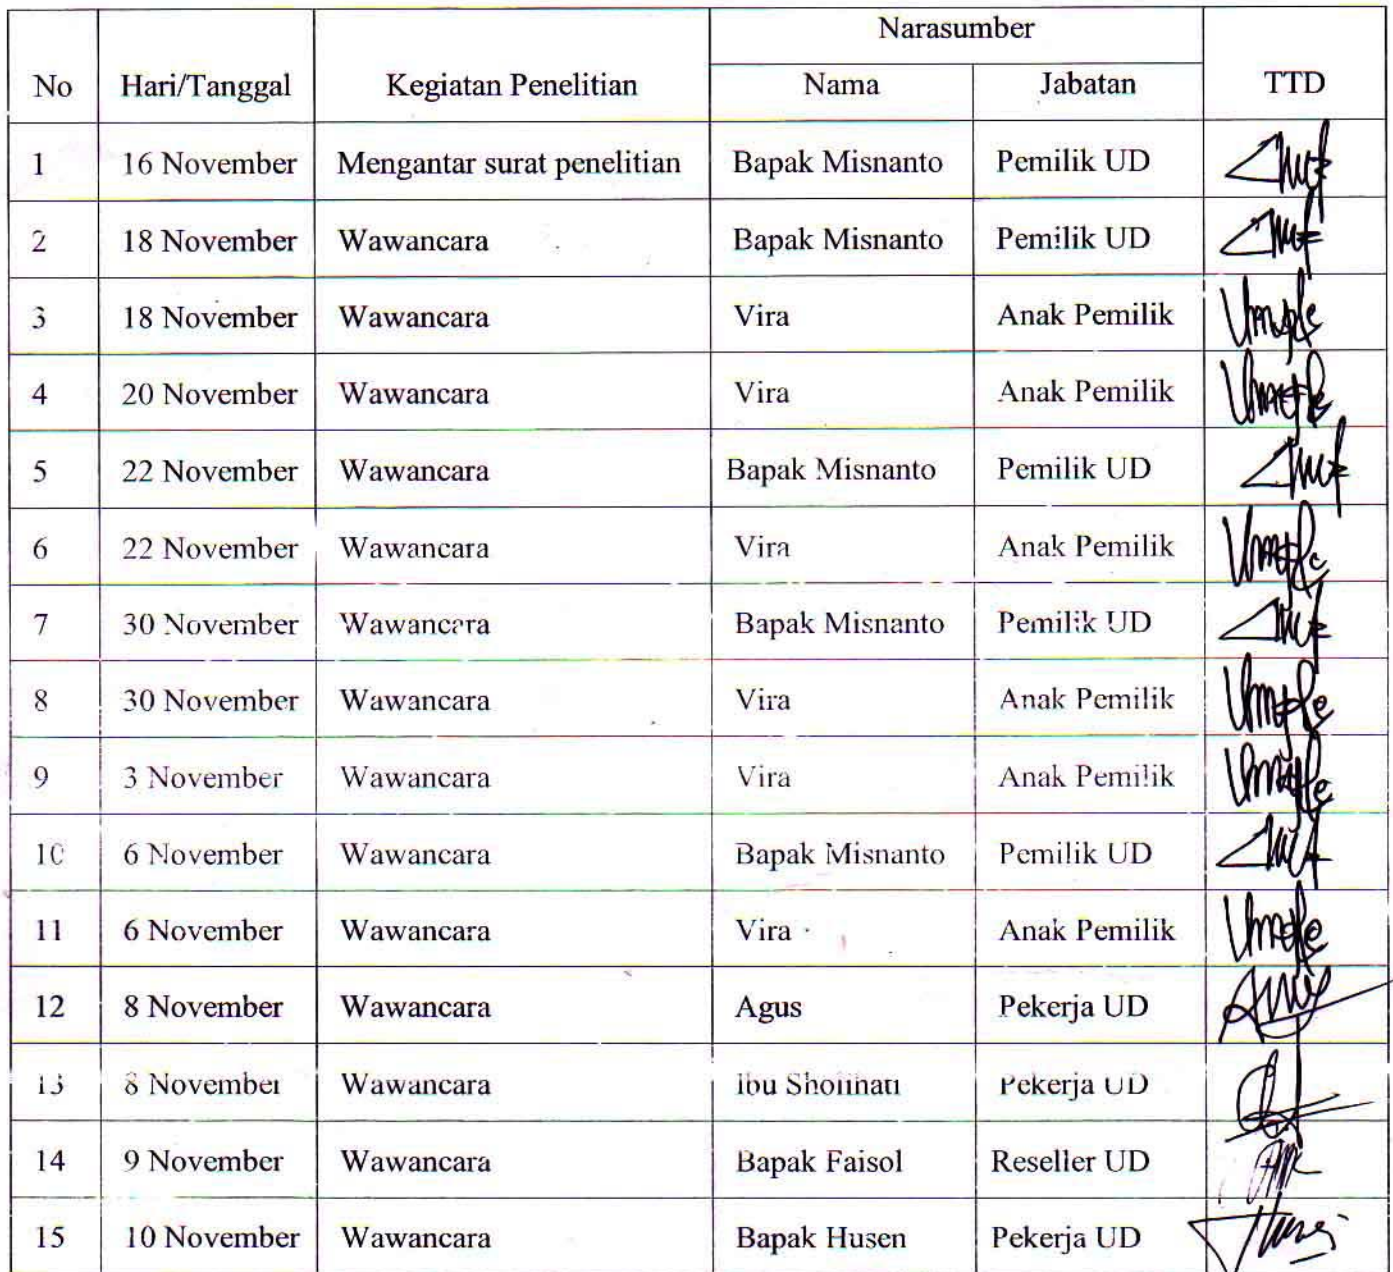 Narasumber
No Hari/Tanggal Kegiatan Penelitian Nama Jabatan TTD
1 16 November Mengantar surat penelitian Bapak Misnanto Pemilik UD
2 18 November Wawancara Bapak Misnanto Pemilik UD
3 18 November Wawancara Vira Anak Pemilik
4 20 November Wawancara Vira Anak Pemilik
5 22 November Wawancara Bapak Misnanto Pemilik UD
6 22 November Wawancara Vira Anak Pemilik
7 30 November Wawancara Bapak Misnanto Pemilik UD
8 30 November Wawancara Vira Anak Pemilik
9 3 November Wawancara Vira Anak Pemilik
10 6 November Wawancara Bapak Misnanto Pemilik UD
11 6 November Wawancara Vira Anak Pemilik
12 8 November Wawancara Agus Pekerja UD
13 8 November Wawancara Ibu Sholihati Pekerja UD
14 9 November Wawancara Bapak Faisol Reseller UD
15 10 November Wawancara Bapak Husen Pekerja UD